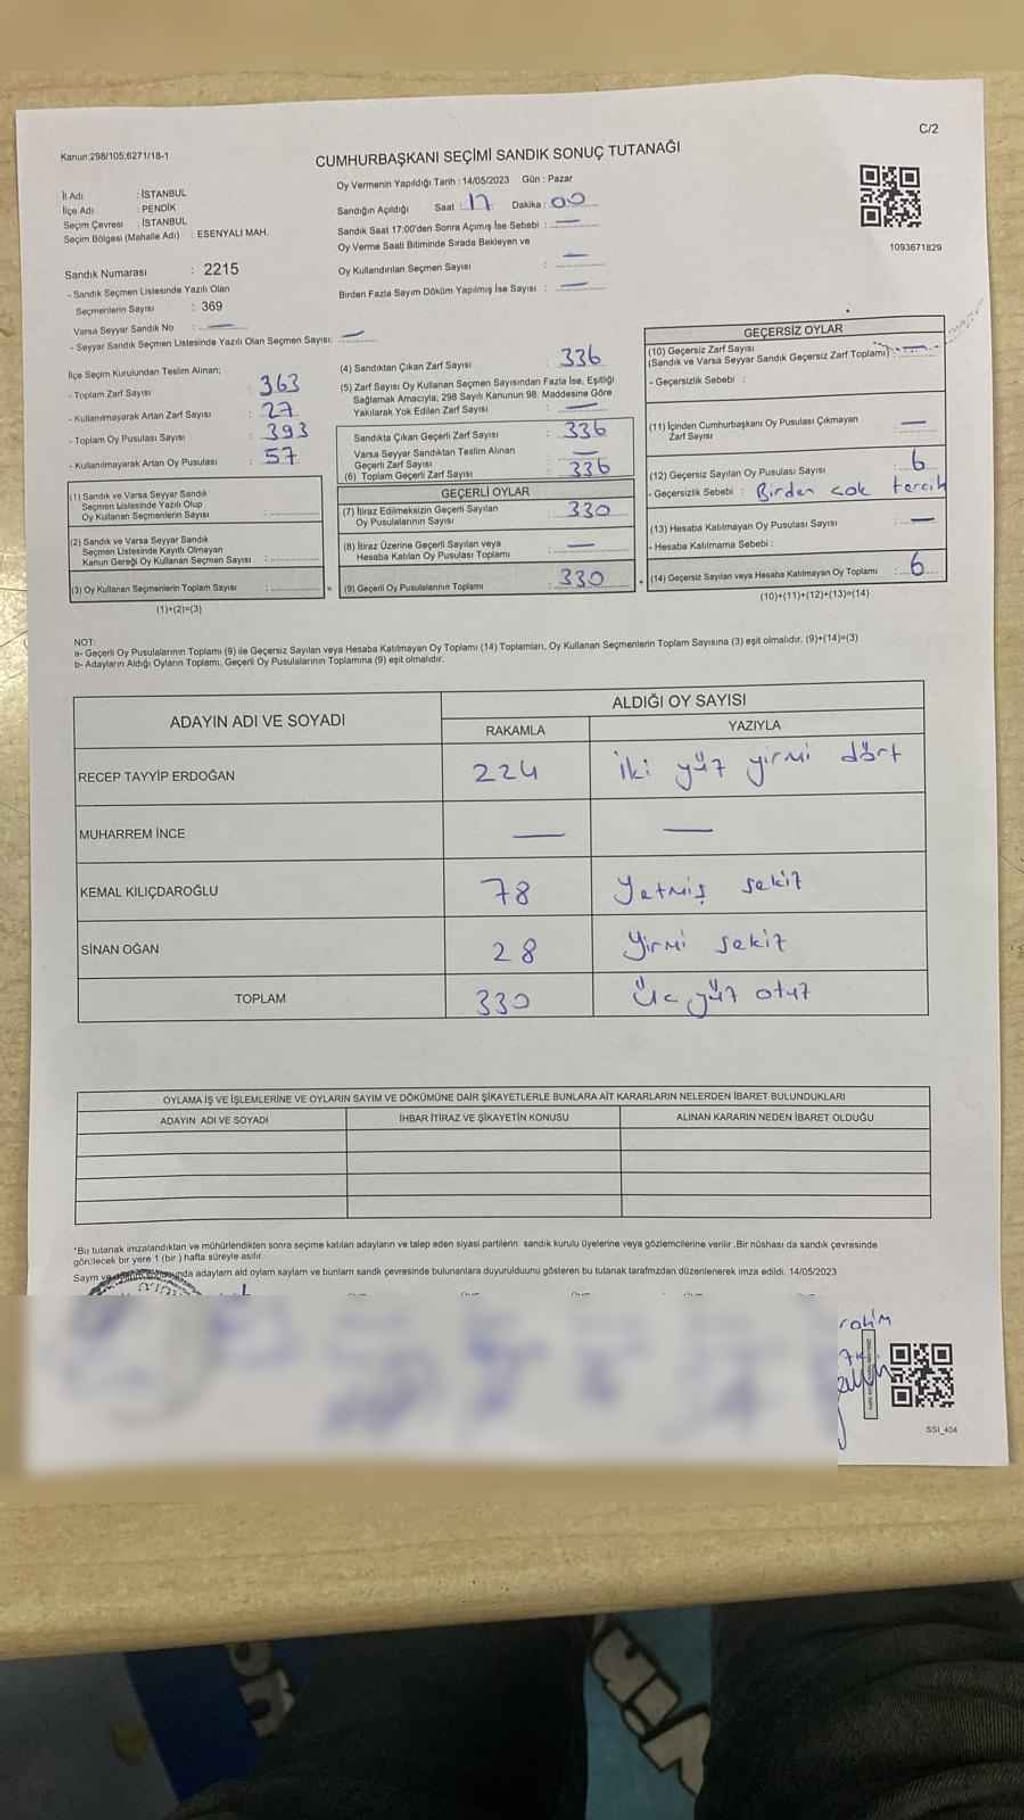 C/2
Kanun:298/105,6271/18-1
CUMHURBAŞKANI SEÇİMİ SANDIK SONUÇ TUTANAĞI
İl Adı : İSTANBUL
İlçe Adı : PENDİK
Seçim Çevresi : İSTANBUL
Seçim Bölgesi (Mahalle Adı) : ESENYALI MAH.
Sandık Numarası : 2215
- Sandık Seçmen Listesinde Yazılı Olan
Seçmenlerin Sayısı : 369
Varsa Seyyar Sandık No : —
- Seyyar Sandık Seçmen Listesinde Yazılı Olan Seçmen Sayısı: —
Oy Vermenin Yapıldığı Tarih : 14/05/2023 Gün : Pazar
Sandığın Açıldığı Saat : 17 Dakika : 00
Sandık Saat 17:00'den Sonra Açımış İse Sebebi : —
Oy Verme Saati Bitiminde Sırada Bekleyen ve
Oy Kullandırılan Seçmen Sayısı : —
Birden Fazla Sayım Döküm Yapılmış İse Sayısı : —
1093671829
İlçe Seçim Kurulundan Teslim Alınan;
- Toplam Zarf Sayısı : 363
- Kullanılmayarak Artan Zarf Sayısı : 27
- Toplam Oy Pusulası Sayısı : 393
- Kullanılmayarak Artan Oy Pusulası : 57
(1) Sandık ve Varsa Seyyar Sandık
Seçmen Listesinde Yazılı Olup
Oy Kullanan Seçmenlerin Sayısı :
(2) Sandık ve Varsa Seyyar Sandık
Seçmen Listesinde Kayıtlı Olmayan
Kanun Gereği Oy Kullanan Seçmen Sayısı :
(3) Oy Kullanan Seçmenlerin Toplam Sayısı :
(1)+(2)=(3)
(4) Sandıktan Çıkan Zarf Sayısı : 336
(5) Zarf Sayısı Oy Kullanan Seçmen Sayısından Fazla İse, Eşitliği
Sağlamak Amacıyla, 298 Sayılı Kanunun 98. Maddesine Göre
Yakılarak Yok Edilen Zarf Sayısı : —
Sandıkta Çıkan Geçerli Zarf Sayısı : 336
Varsa Seyyar Sandıktan Teslim Alınan
Geçerli Zarf Sayısı : —
(6) Toplam Geçerli Zarf Sayısı : 336
GEÇERLİ OYLAR
(7) İtiraz Edilmeksizin Geçerli Sayılan
Oy Pusulalarının Sayısı : 330
(8) İtiraz Üzerine Geçerli Sayılan veya
Hesaba Katılan Oy Pusulası Toplamı : —
= (9) Geçerli Oy Pusulalarının Toplamı : 330
GEÇERSİZ OYLAR
(10) Geçersiz Zarf Sayısı
(Sandık ve Varsa Seyyar Sandık Geçersiz Zarf Toplamı) : —
- Geçersizlik Sebebi :
(11) İçinden Cumhurbaşkanı Oy Pusulası Çıkmayan
Zarf Sayısı : —
(12) Geçersiz Sayılan Oy Pusulası Sayısı : 6
- Geçersizlik Sebebi : Birden cok tercih
(13) Hesaba Katılmayan Oy Pusulası Sayısı : —
- Hesaba Katılmama Sebebi :
+ (14) Geçersiz Sayılan veya Hesaba Katılmayan Oy Toplamı : 6
(10)+(11)+(12)+(13)=(14)
NOT:
a- Geçerli Oy Pusulalarının Toplamı (9) ile Geçersiz Sayılan veya Hesaba Katılmayan Oy Toplamı (14) Toplamları, Oy Kullanan Seçmenlerin Toplam Sayısına (3) eşit olmalıdır. (9)+(14)=(3)
b- Adayların Aldığı Oyların Toplamı, Geçerli Oy Pusulalarının Toplamına (9) eşit olmalıdır.
ADAYIN ADI VE SOYADI
ALDIĞI OY SAYISI
RAKAMLA YAZIYLA
RECEP TAYYİP ERDOĞAN 224 İki yüz yirmi dört
MUHARREM İNCE — —
KEMAL KILIÇDAROĞLU 78 Yetmiş sekiz
SİNAN OĞAN 28 Yirmi sekiz
TOPLAM 330 Üc yüz otuz
OYLAMA İŞ VE İŞLEMLERİNE VE OYLARIN SAYIM VE DÖKÜMÜNE DAİR ŞİKAYETLERLE BUNLARA AİT KARARLARIN NELERDEN İBARET BULUNDUKLARI
ADAYIN ADI VE SOYADI İHBAR İTİRAZ VE ŞİKAYETİN KONUSU ALINAN KARARIN NEDEN İBARET OLDUĞU
*Bu tutanak imzalandıktan ve mühürlendikten sonra seçime katılan adayların ve talep eden siyasi partilerin sandık kurulu üyelerine veya gözlemcilerine verilir. Bir nüshası da sandık çevresinde
görülecek bir yere 1 (bir ) hafta süreyle asılır.
Sayım adayların ald oyların sayları ve bunların sandık çevresinde bulunanlara duyurulduunu gösteren bu tutanak tarafmzdan düzenlenerek imza edildi. 14/05/2023
SSI_404